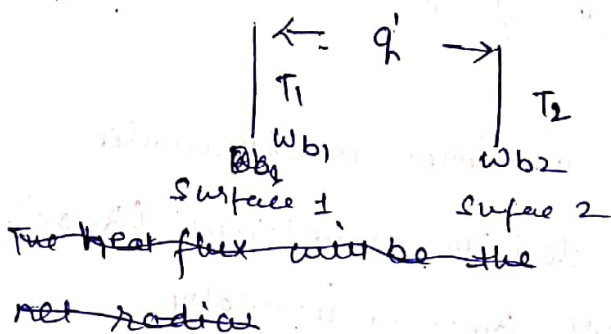 ← q' →
T1
T2
Wb1
Wb2
Surface 1
Suface 2
The heat flux will be the
net radial